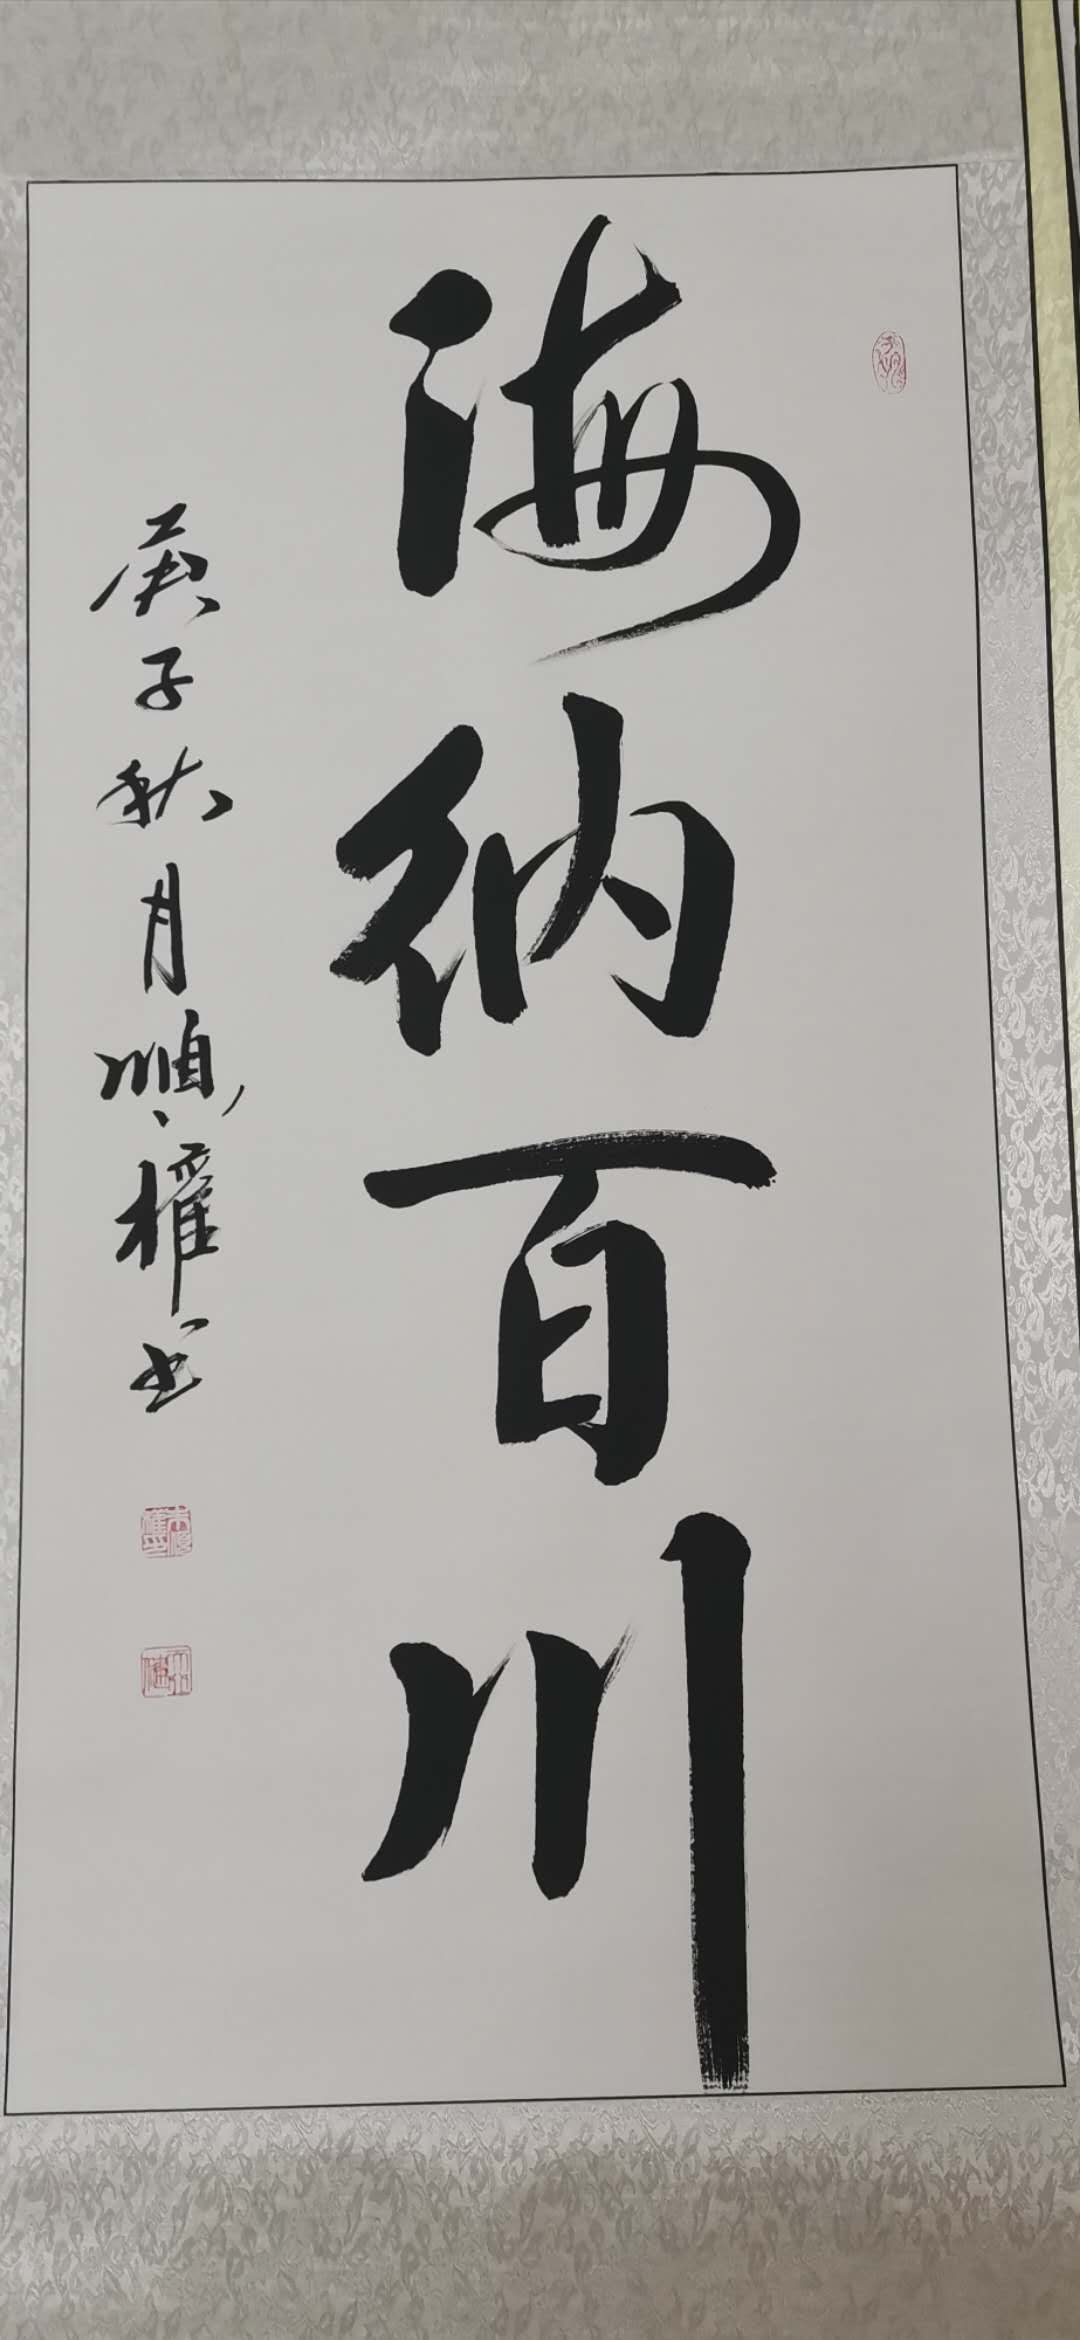 海纳百川
庚子秋月順權书